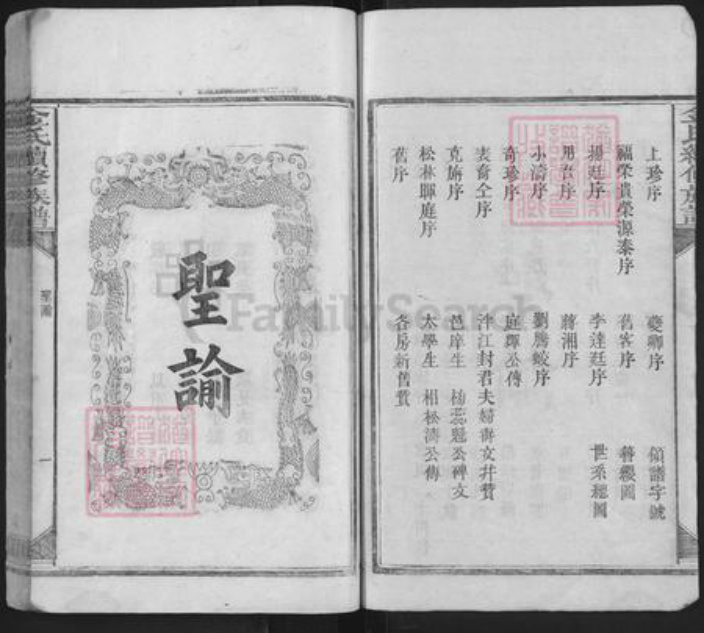 上珍序
夔卿序
領譜字號
福榮貴榮源泰序
舊客序
簪纓圖
揚廷序
李達廷序
世系總圖
用吾序
蔣湘序
小濤序
劉騰蛟序
奇珍序
庭輝公傳
表裔仝序
沣江封君夫婦壽文并贊
克旃序
邑庠生 楊蕊魁公碑文
松林暉庭序
太學生 相松濤公傳
舊序
各房新舊贊
聖諭
金氏續修族譜
聖諭
一
FamilySearch